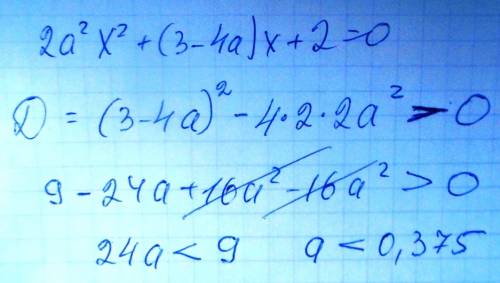 2a² x² + (3-4a)x + 2 = 0
D = (3-4a)² - 4·2·2a² > 0
9 - 24a + 16a² - 16a² > 0
24a < 9 a < 0,375